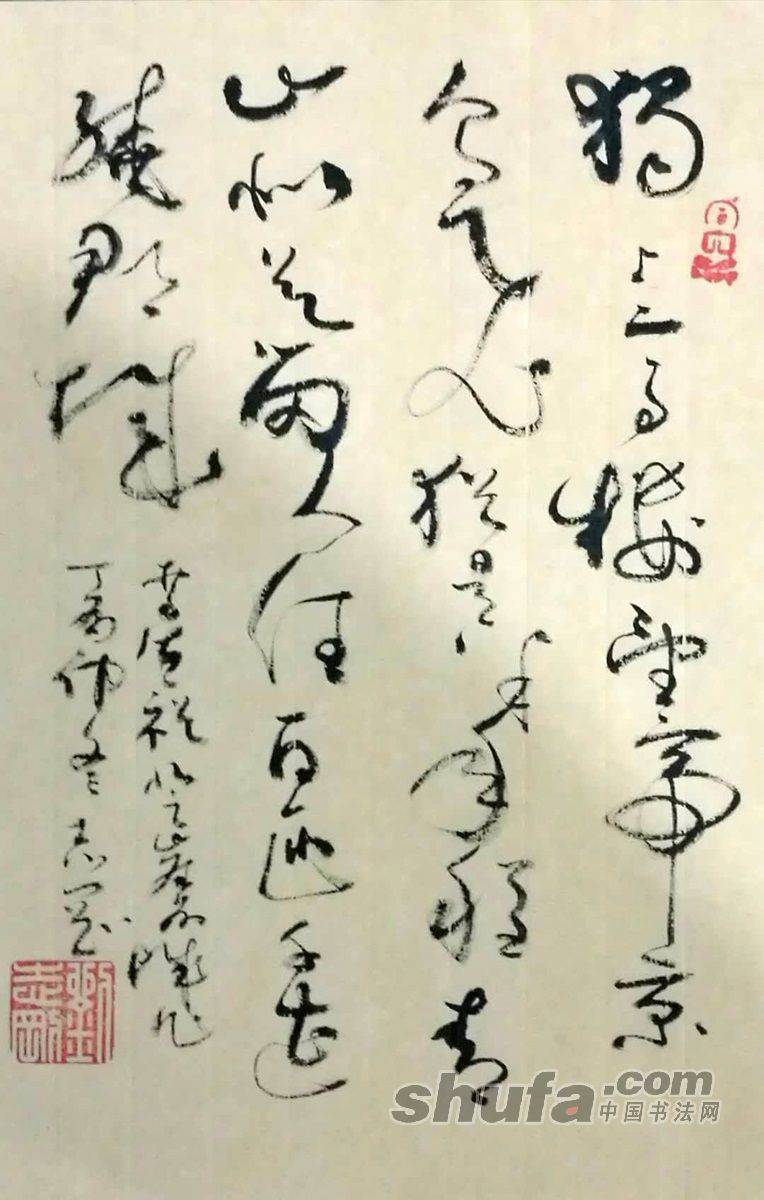 獨上高樓望帝京
鳥飛猶是半年程青
山似欲留人住百匝千遭
繞郡城
李德裕登崖州城作
丁酉仲冬志罡
shufa.com
中国书法网